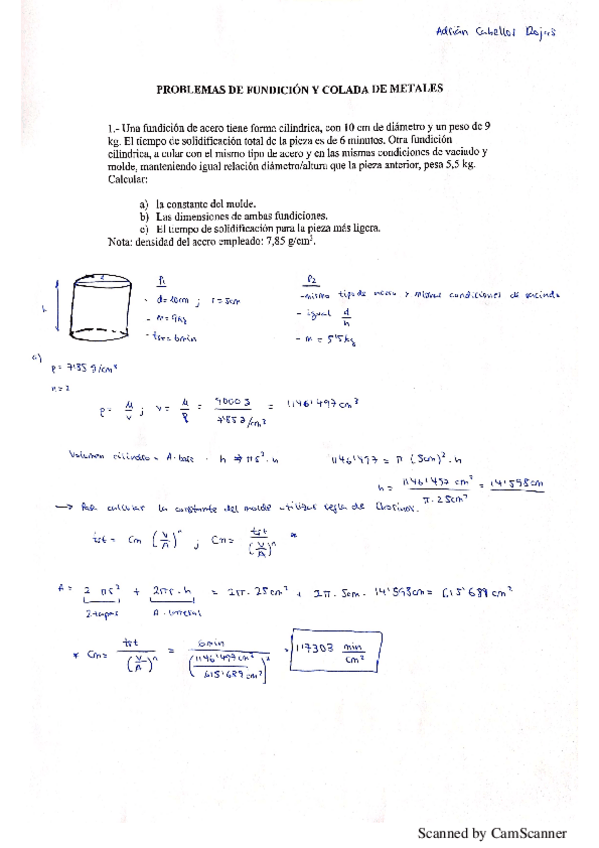 Adrián Cabellos Rojas
PROBLEMAS DE FUNDICIÓN Y COLADA DE METALES
1.- Una fundición de acero tiene forma cilíndrica, con 10 cm de diámetro y un peso de 9
kg. El tiempo de solidificación total de la pieza es de 6 minutos. Otra fundición
cilíndrica, a colar con el mismo tipo de acero y en las mismas condiciones de vaciado y
molde, manteniendo igual relación diámetro/altura que la pieza anterior, pesa 5,5 kg.
Calcular:
a) la constante del molde.
b) Las dimensiones de ambas fundiciones.
c) El tiempo de solidificación para la pieza más ligera.
Nota: densidad del acero empleado: 7,85 g/cm³.
P1
- d=10cm ; r=5cm
- m=9kg
- tst=6min
P2
-mismo tipo de acero y mismas condiciones de vaciado
- igual d/h
- m = 5'5kg
h
a)
ρ= 7'85 g/cm³
n=2
ρ= M/V ; V= M/ρ = 9000 g / 7'85 g/cm³ = 1146'497 cm³
Volumen cilindro = A.base · h ⇒ πr²·h
1146'497 = π (5cm)²·h
h= 1146'497 cm³ / π·25cm² = 14'598cm
→ Para calcular la constante del molde utilizar regla de Chvorinov.
tst= Cm (V/A)ⁿ ; Cm= tst / (V/A)ⁿ *
A= 2πr² + 2πr·h = 2π·25cm² + 2π·5cm·14'598cm = 615'689 cm²
2 tapas
* Cm= tst / (V/A)ⁿ = 6min / (1146'497 cm³ / 615'689 cm²)² = 1'7303 min/cm²
Scanned by CamScanner